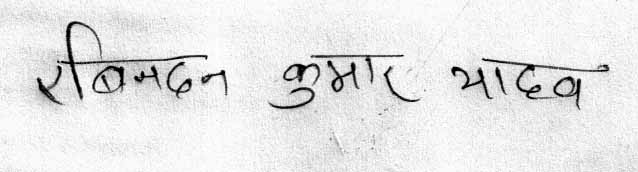 रबिनदन कुमार यादव